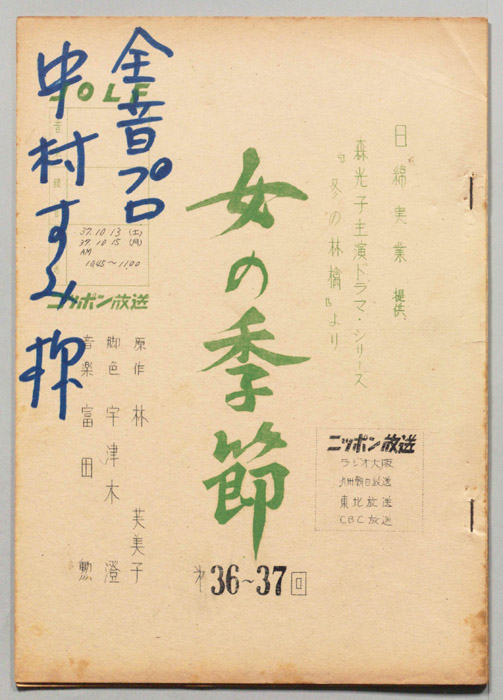 日綿実業 提供
森光子主演ドラマ・シリーズ
"冬の林檎"より
女の季節
才36~37回
ニッポン放送
ラジオ大阪
九州朝日放送
東北放送
CBC放送
原作 林 芙美子
脚色 宇津木 澄
音楽 冨田 勲
ROLE
37.10.13 (土)
37.10.15 (月)
AM
10.45~11.00
ニッポン放送
全音プロ
中村すみ様